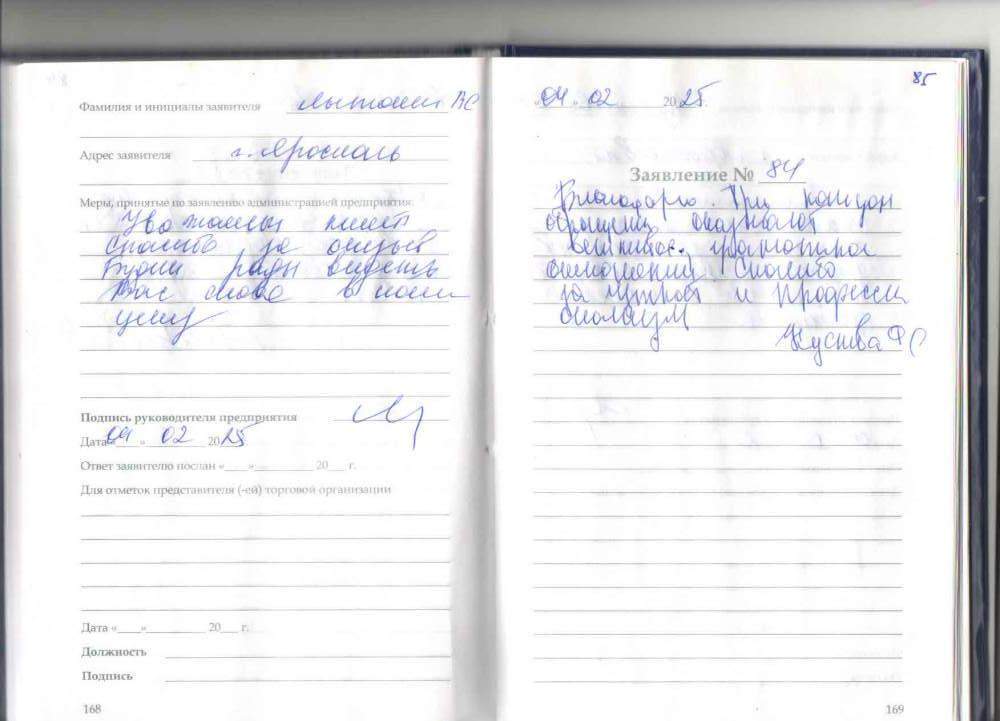 Фамилия и инициалы заявителя
Адрес заявителя г. Ярославль
Меры, принятые по заявлению администрацией предприятия:
Уважаемый клиент
Спасибо за отзыв
Будем рады видеть
Вас снова в нашем
центре
Подпись руководителя предприятия
Дата «04» 02 2025
Ответ заявителю послан «___» ___ 20___ г.
Для отметок представителя (-ей) торговой организации
Дата «___» ___ 20___ г.
Должность
Подпись
168
85
«04» 02 2025 г.
Заявление № 84
Благодарю. При каждом
обращении оказывают
грамотное
Спасибо
за и професси
онализм
169